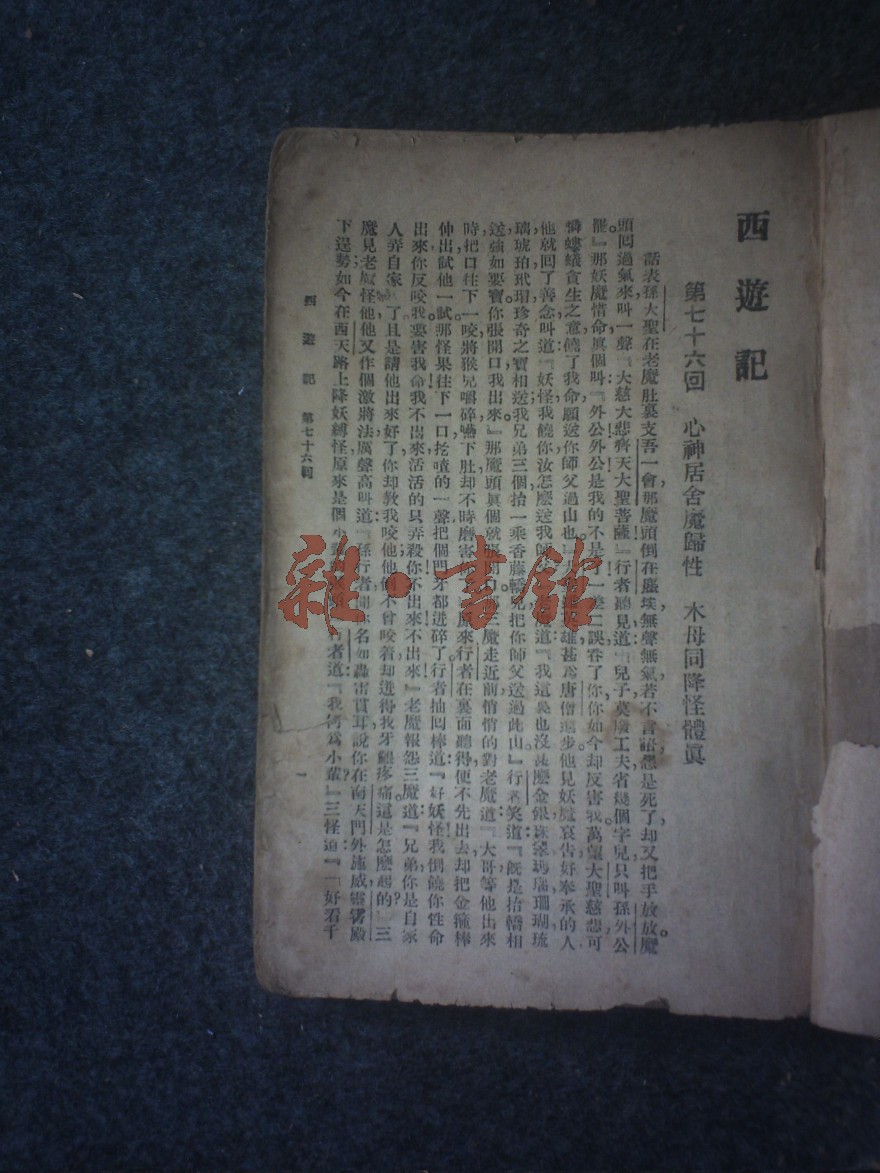 西遊記
第七十六回 心神居舍魔歸性 木母同降怪體眞
話表孫大聖在老魔肚裏支吾一會那魔頭倒在塵埃無聲無氣若不言語想是死了却又把手放放魔
頭回過氣來叫一聲『大慈大悲齊天大聖菩薩』行者聽見道『兒子莫廢工夫省幾個字兒只叫孫外公
罷』那妖魔惜命眞個叫『外公外公是我的不是了一差二誤吞了你你如今却反害我萬望大聖慈悲可
憐螻蟻貪生之意饒了我命願送你師父過山也』大聖雖英雄甚爲唐僧進步他見妖魔哀告好奉承的人
他就回了善念叫道『妖怪我饒你汝怎麽送我師父』老魔道『我這裏也沒甚麽金銀珠翠瑪瑙珊瑚琉
璃琥珀玳瑁珍奇之寶相送我兄弟三個抬一乘香藤轎兒把你師父送過此山』行者笑道『旣是抬轎相
送強如要寶你張開口我出來』那魔頭眞個就張開口那三魔走近前悄悄的對老魔道『大哥等他出來
時把口往下一咬將猴兒嚼碎嚥下肚却不得磨害你了』原來行者在裏面聽得便不先出去却把金箍棒
伸出試他一試那怪果往下一口扢喳的一聲把個門牙都迸碎了行者抽回棒道『好妖怪我倒饒你性命
出來你反咬我要害我命我不出來活活的只弄殺你不出來不出來』老魔報怨三魔道『兄弟你是自家
人弄自家 了且是請他出來好了你却敎我咬他他倒不曾咬着却迸得我牙齦疼痛這是怎麽起的』三
魔見老魔怪他他又作個激將法厲聲高叫道『孫行者聞你名如轟雷貫耳說你在南天門外施威靈霄殿
下逞勢如今在西天路上降妖縛怪原來是個小 行者道『我何爲小輩』三怪道『「好看千
西遊記 第七十六回 一
雜·書館